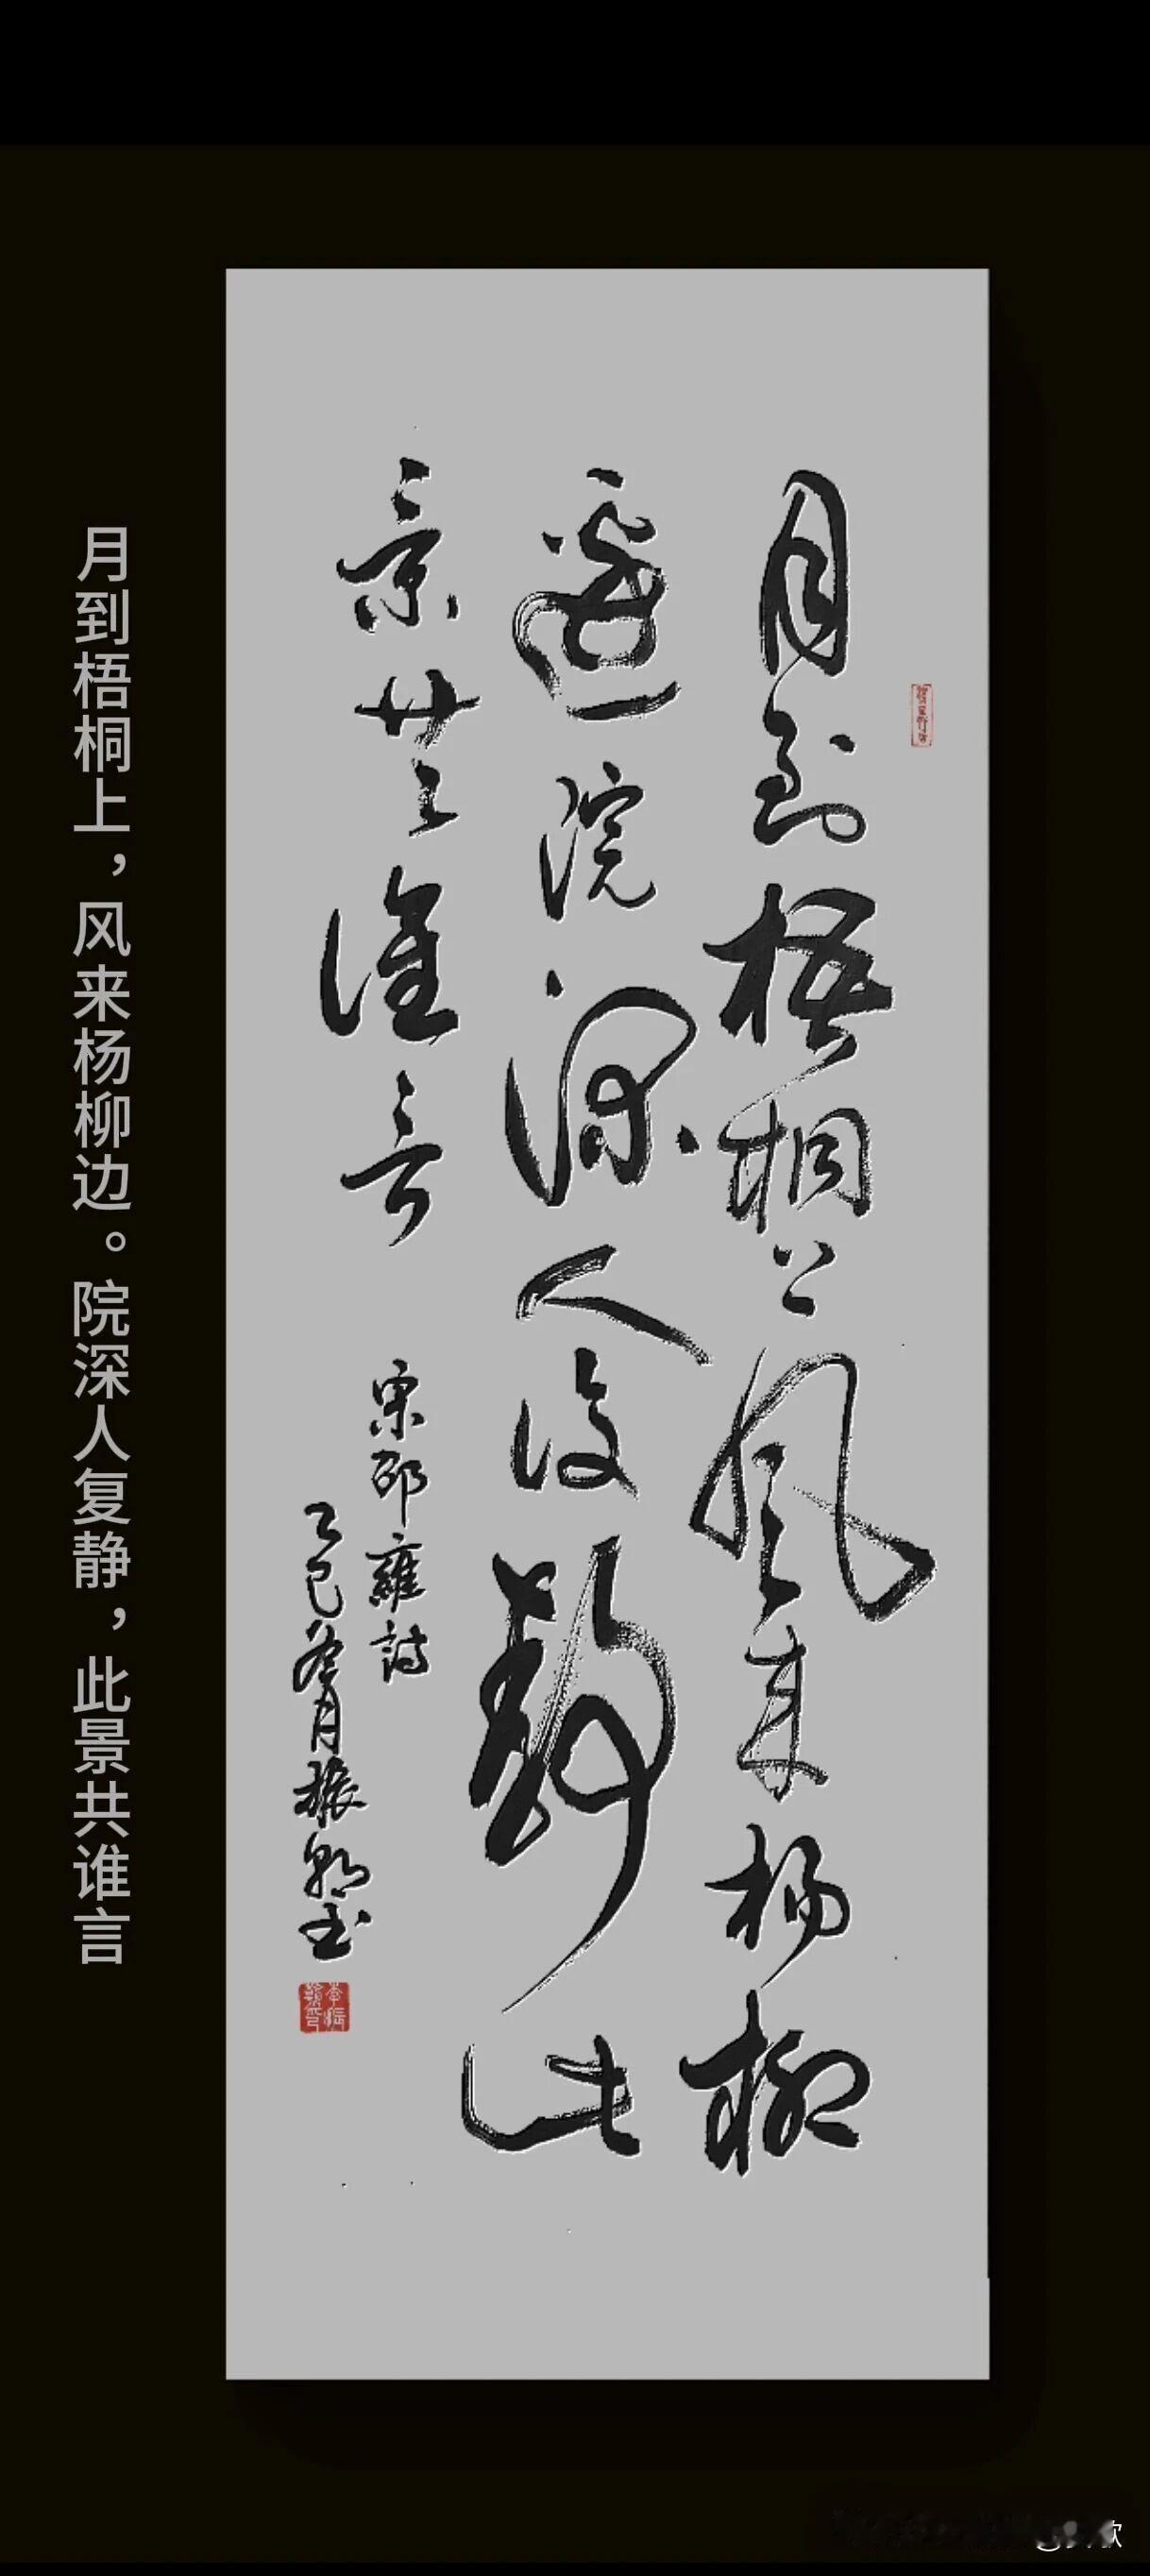 月到梧桐上风来杨柳
边院深人复静此
景共谁言
宋邵雍詩
乙巳
振
书
月到梧桐上，风来杨柳边。院深人复静，此景共谁言